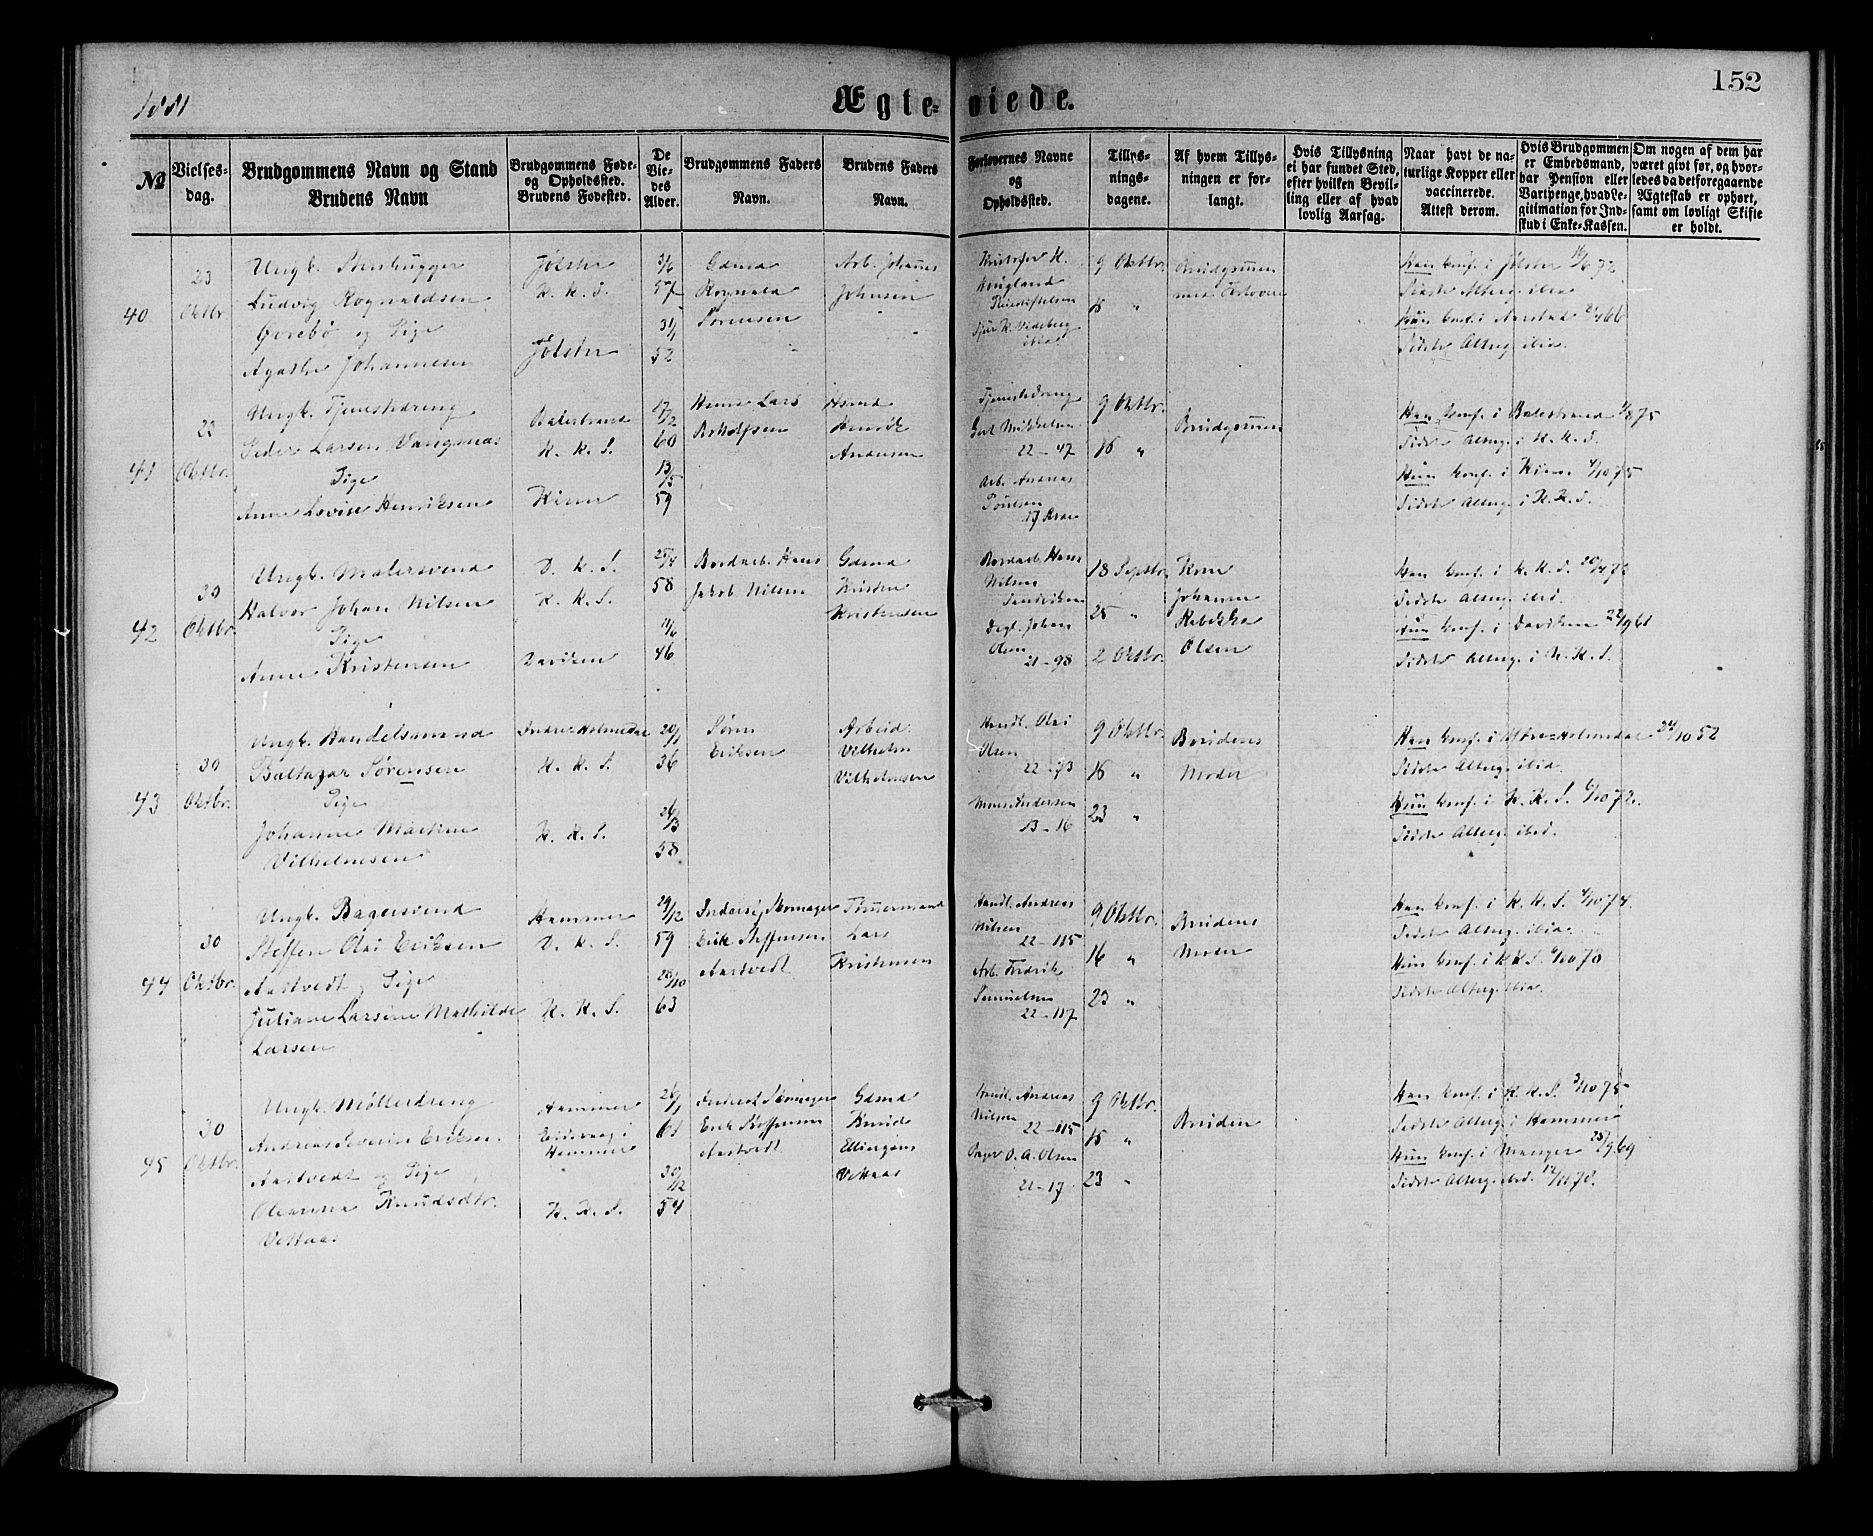 1881
Ægte-
viede.
152
No
Vielses-
dag.
Brudgommens Navn og Stand
Brudens Navn
Brudgommens Føde-
og Opholdssted.
Brudens Fødested.
De
Vie-
des
Alder.
Brudgommens Faders
Navn.
Brudens Faders
Navn.
Forlovernes Navne
og
Opholdssted.
Tillys-
nings-
dagene.
Af hvem Tillys-
ningen er for-
langt.
Hvis Tillysning
ei har fundet Sted,
efter hvilken Bevil-
ling eller af hvad
lovlig Aarsag.
Naar havt de na-
turlige Kopper eller
vaccinerede.
Attest derom.
Hvis Brudgommen
er Embedsmand,
har Pension eller
Vartpenge, hvad Le-
gitimation for Ind-
skud i Enke-Kassen.
Om nogen af dem har
været givt før, og hvor-
ledes da det foregaaende
Ægteskab er ophørt,
samt om lovligt Skifte
er holdt.
40
23
Oktbr
Ungk. Stenhugger
Ludvig Rognaldsen
Gjorebø og Pige
Agathe Johannesen
Jølster
K. K. S.
Jølster
3/6
57
31/1
52
Gdmd
Rognald
Sørensen
Arb. Johannes
Johnsen
Kristofer H.
9 Oktbr.
16 "
Brudgommen
med Forlover
Han Conf. i Jølster 16/6 72
Sidste Alterg. ibid
Hun Conf. i Aardal 2/4 66
Sidste Alterg. ibid.
41
23
Oktbr.
Ungk. Tjenestedreng
Peder Larsen Vangsnæs
Pige
Anne Lovise Henriksen
Balestrand
K. K. S.
Kinn
17/2
60
13/5
59
Huusm. Lars
Gdmd
Henrik
Andersen
Tjenestedreng
Gert Mikkelsen
22-47
Arb. Andreas
Poulsen
9 Oktbr.
16 "
Brudgommen
Han Conf. i Balestrand 1/8 75
Sidste Alterg. i K. K. S.
Hun Conf. i Kinn 4/10 75
Sidste Alterg. i K. K. S.
42
30
Oktbr.
Ungk. Malersvend
Halvor Johan Nilsen
Pige
Anne Kristensen
D. K. S.
K. K. S.
Daviken
25/4
58
11/6
46
Bordarb. Hans
Jakob Nilsen
Gdmd
Kristen
Kristensen
Bordarb. Hans
Nilsen
Sandviken
Dagl. Johan
Olsen
21-98
18 Septbr.
25 "
2 Oktbr.
Kone
Johanne
Rebekka
Olsen
Han Conf. i K. K. S. 20/4 72
Sidste Alterg. ibid.
Hun Conf. i Daviken 22/9 61
Sidste Alterg. i K. K. S.
43
30
Oktbr.
Ungk. Handelsmand
Baltazar Sørensen
Pige
Johanne Martine
Vilhelmsen
Indre Holmedal
K. K. S.
K. K. S.
20/1
36
26/3
58
Søren
Eriksen
Arbeid.
Vilhelm
Vilhelmsen
Handl. Olai
Olsen
22-73
Mons Andersen
13-16
9 Oktbr.
16 "
23 "
Brudens
Moder
Han Conf. i Ydre-Holmedal 24/10 52
Sidste Alterg. ibid.
Hun Conf. i K. K. S. 6/10 72.
Sidste Alterg. ibid.
44
30
Oktbr.
Ungk. Bagersvend
Steffen Olai Eriksen
Aastvedt, Pige
Juliane Larsine Mathilde
Larsen
Hammer
D. K. S.
K. K. S.
29/12
59
28/10
63
Inderst, Skomager
Erik Steffensen
Aastvedt
Tømmermand
Lars
Kristensen
Handl. Andreas
Nilsen
22-115
Arb. Fredrik
Samuelsen
22-117
9 Oktbr.
16 "
23 "
Brudens
Moder
Han Conf. i K. K. S. 4/10 74.
Sidste Alterg. ibid.
Hun Conf. i K. K. S. 6/10 78
Sidste Alterg. ibid.
45
30
Oktbr.
Ungk. Møllerdreng
Andreas Severin Eriksen
Aastvedt og Pige
Oleanna Knudsdtr.
Vettaas
Hammer
Eidsvaag i
Hammer
K. K. S.
26/1
61
30/12
54
Inderst Skomager
Erik Steffensen
Aastvedt
Gdmd
Knud
Ellingsen
Vettaas
Handl. Andreas
Nilsen
22-115
O. A. Olsen
21-17
9 Oktbr.
16 "
23 "
Bruden
Han Conf. i K. K. S. 3/10 75
Sidste Alterg. i Hammer
Hun Conf. i Manger 25/9 69
Sidste Alterg. ibid. 17/11 78.